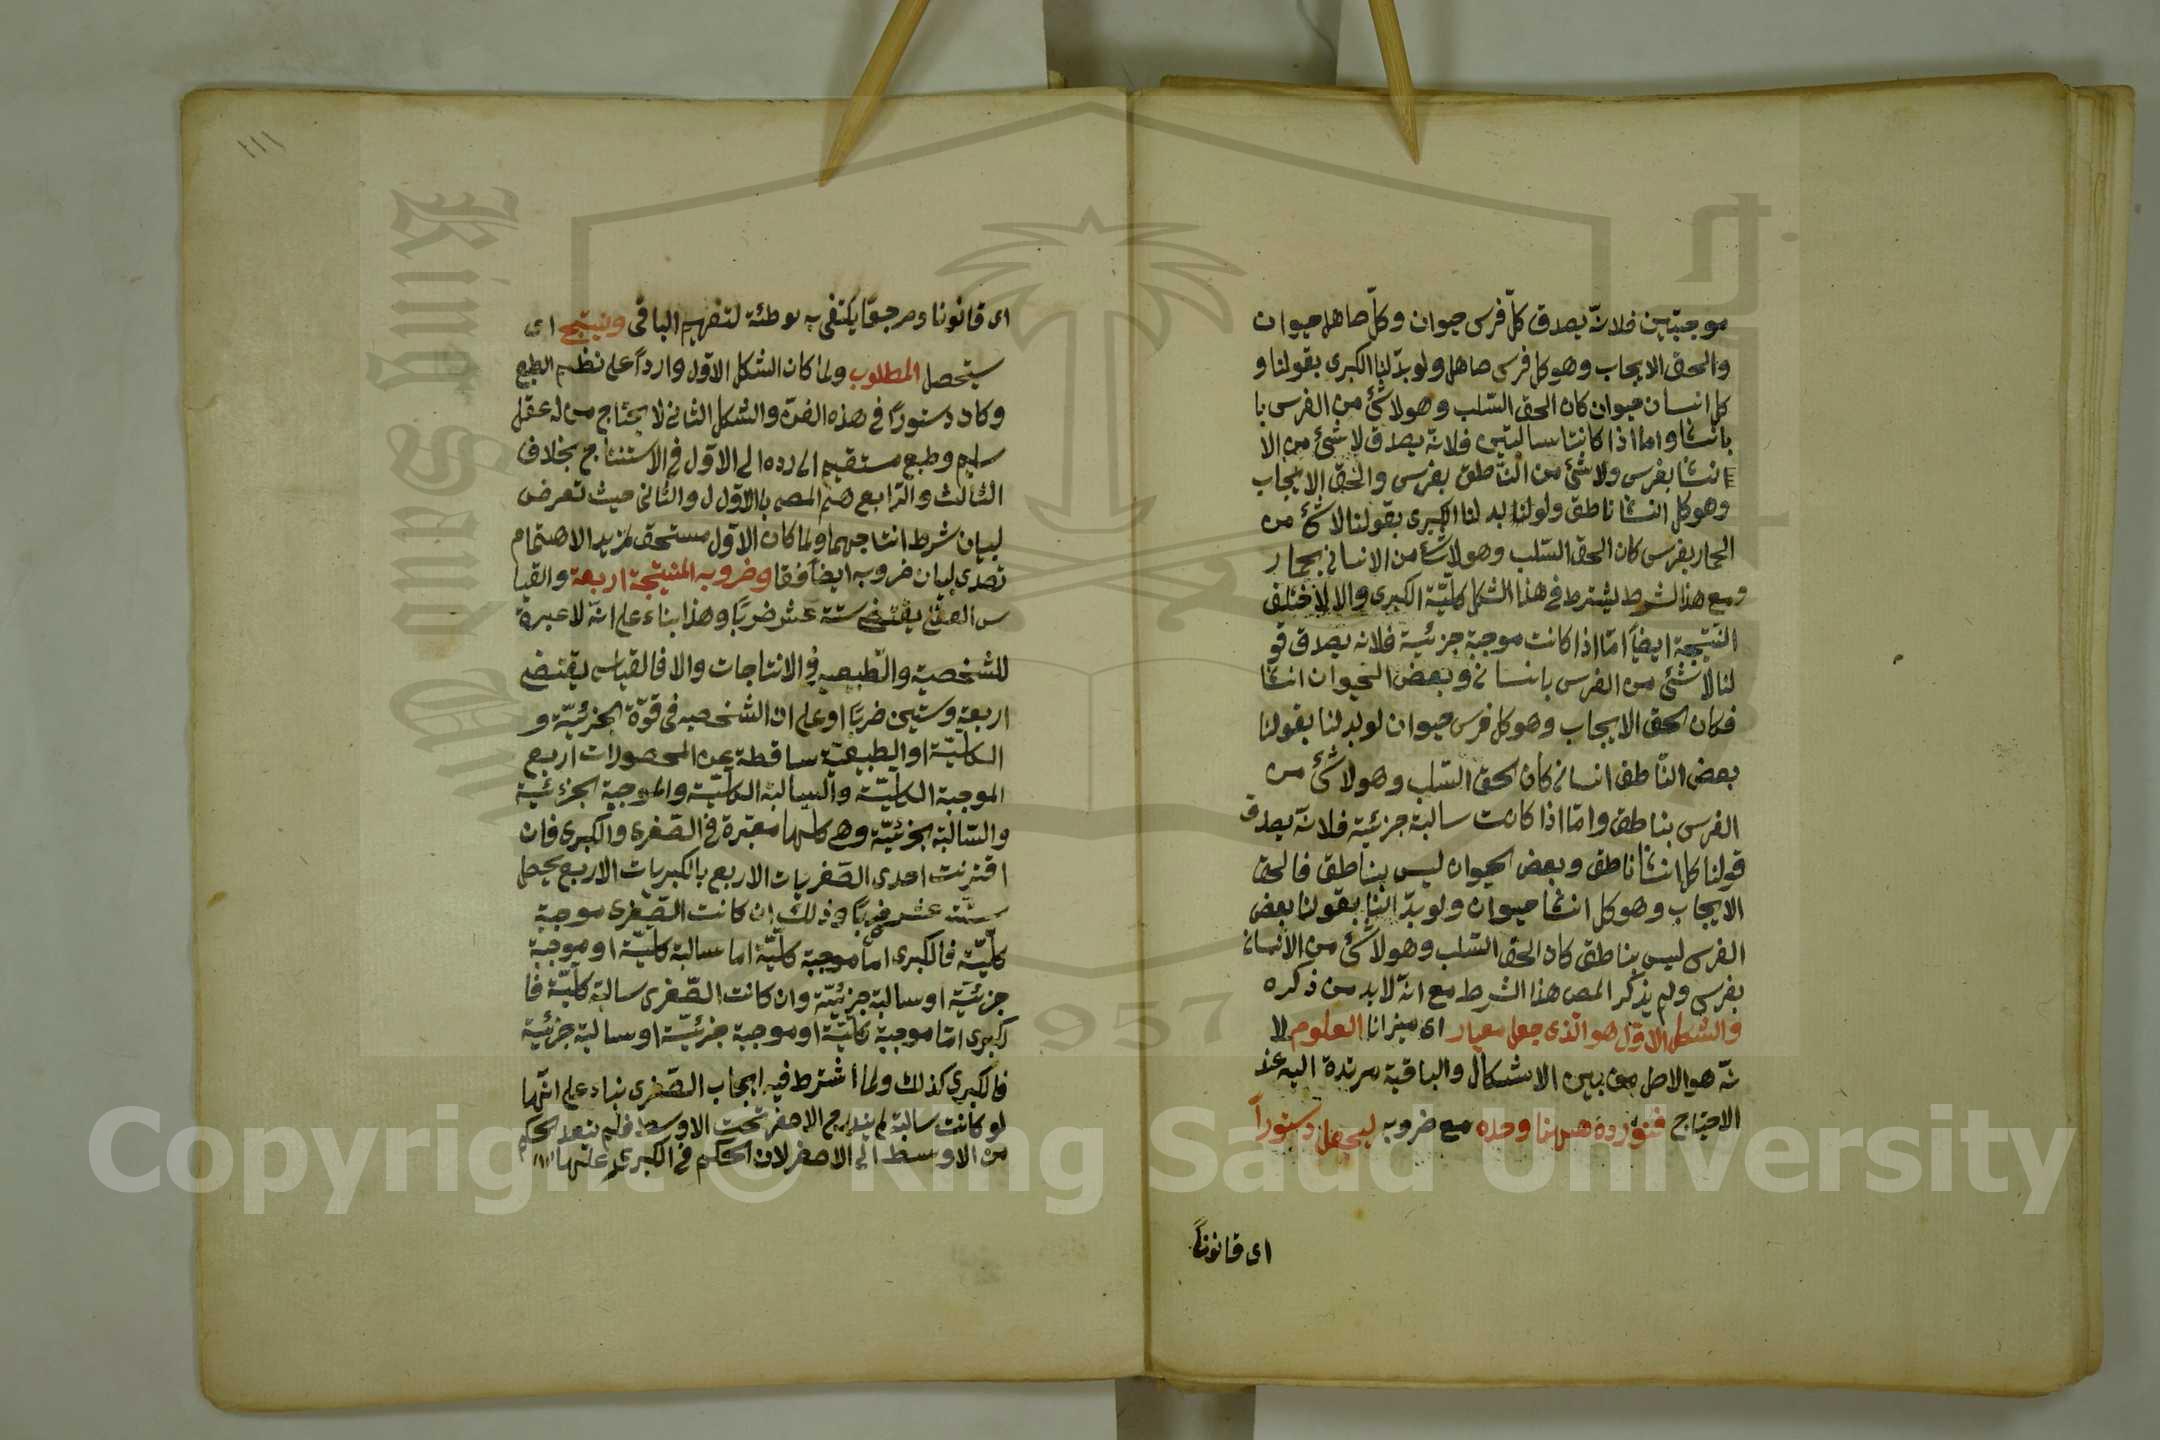 موجبتين فلانّه يصدق كلّ فرس حيوان وكلّ صاهل حيوان
والحق الايجاب وهو كل فرس صاهل ولو بدّلنا الكبرى بقولنا و
كل انسان حيوان كان الحق السّلب وهو لا شئ من الفرس با
بانسا واما اذا كانتا سالبتين فلانّه يصدق لا شئ من الا
انسا بفرس ولا شئ من النّاطق بفرس والحق الايجاب
وهو كل انسا ناطق ولو بد لنا الكبرى بقولنا لا شئ من
الحمار بفرس كان الحق السّلب وهو لا شئ من الانسان بحمار
ومع هذا الشرط يشترط فى هذا الشكل كليّة الكبرى والا لاختلف
النّتيجة ايضاً امّا اذا كانت موجبة جزئية فلانه يصدق قو
لنا لا شئ من الفرس بانسان وبعض الحيوان انسا
فكان الحق الايجاب وهو كل فرس حيوان لو بد لنا بقولنا
بعض النّاطق انسان كان الحق السّلب وهو لا شئ من
الفرس بناطق وامّا اذا كانت سالبة جزئية فلانّه يصدق
قولنا كل انسا ناطق وبعض الحيوان ليس بناطق فالحق
الايجاب وهو كل انسا حيوان ولو بدّلنا بقولنا بعض
الفرس ليس بناطق كان الحق السّلب وهو لا شئ من الانسان
بفرس ولم يذكر المص هذا الشرط مع انّه لا بد من ذكره
والشكل الاوّل هو الّذى جعل معيار اى ميزانا العلوم لا
نّه هو الاصل من بين الاشكال والباقية مرتدة اليه عند
الاحتياج فنورده هنا وحده مع ضروبه ليجعل دستوراً
اى قانوناً
١١١
اى قانونا ومرجعًا يكتفى به توطئة لتفهيم الباقى وينتج اى
يستحصل المطلوب ولما كان الشكل الاوّل وارداً على نظم الطبع
وكان دستورًا فى هذه الفنّ والشكل الثانى لا يحتاج من له عقل
سليم وطبع مستقيم الى رده الى الاوّل فى الاستنتاج بخلاف
الثالث والرّابع المص بالاوّل والثانى حيث تعرض
لبيان شرط انتاجهما ولما كان الاوّل مستحق لمزيد الاهتمام
تصدى لبيان ضروبه ايضاً فقا وضروبه المنتجة اربعة والقيا
س العقلى يقتضى ستة عشر ضربًا وهذا بناء على انّه لا عبرة
للشخصية والطّبعيه فى الانتاجات والا فالقياس يقتضى
اربعة وستين ضربًا او على ان الشخصيه فى قوّة الجزئيّة و
الكليّة او الطبيعيّة ساقطة عن المحصورات اربع
الموجبة الكليّة والسالبة الكليّة والموجبة الجزئية
والسّالبة الجزئيّة وهى كلها معتبرة فى الصّغرى والكبرى فان
اقترنت احدى الصّغريات الاربع بالكبريات الاربع يحصل
ستّة عشر ضربًا وذلك ان كانت الصّغرى موجبة
كليّة فالكبرى امّا موجبة كليّة اما سالبة كليّة او موجبة
جزئيّة او سالبة جزئيّة وان كانت الصّغرى سالبة كليّة فا
كبرى امّا موجبة كليّة او موجبة جزئيّة او سالبة جزئية
فالكبرى كذلك ولما اشترط فيه ايجاب الصّغرى بناء على انّها
لو كانت سالبة لم يندرج الاصغر تحت الاوسط فلم يتعد الحكم
من الاوسط الى الاصغر لان الحكم فى الكبرى عليها
King Saud University
1957
Copyright © King Saud University